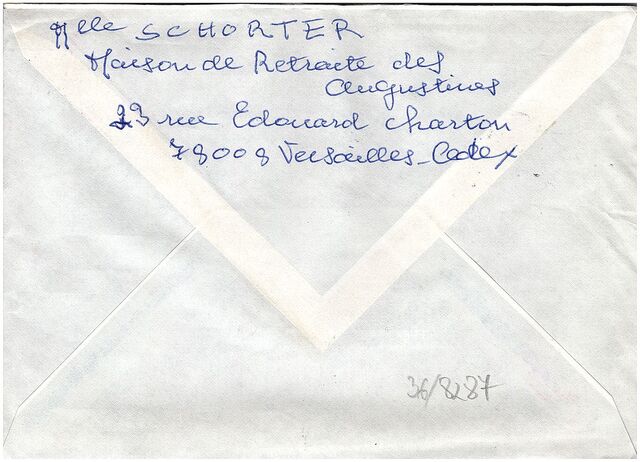 Melle SCHORTER
Maison de Retraite des
Augustines
23 rue Edouard Charton
78008 Versailles-Cedex
36/8287